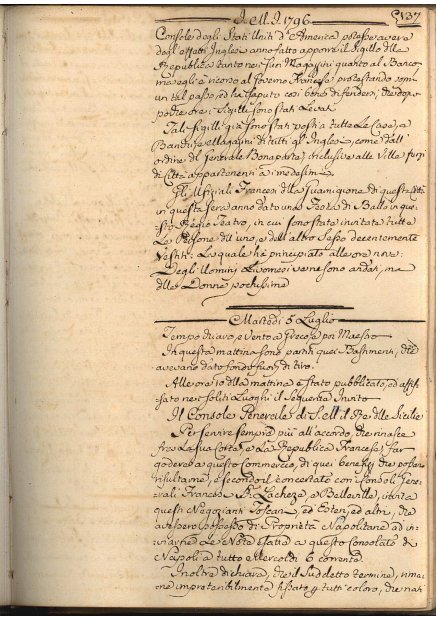 1796
137
Console degli Stati Uniti d'America potesse avere
degl'effetti Inglesi anno fatto apporre il Sigillo della
Repubblica tanto nei suoi Magazzini quanto al Banco
ricorso al Governo Francese protestando
un tal passo, ed ha saputo così bene difendersi, che dopo
poche ore i Sigilli sono stati Levati
Tali Sigilli già sono stati posti a tutte Le Case, e
Banchi, e Magazzini di tutti gl'Inglesi, come dall'
ordine del Generale Bonaparte, inclusive alle Ville fuori
di Città appartenenti a medesimi.
Gl'Ufiziali Francesi della Guarnigione di questa Città
in questa sera anno dato una Festa di Ballo in que-
sto Regio Teatro, in cui sono state invitate tutte
Le Persone dell'uno, e dell'altro Sesso decentemente
Vestiti: La quale ha principiato alle ore nove:
Degli Uomini Livornesi ve ne sono andati, ma
delle Donne pochissime
Martedì 5 Luglio
Tempo chiaro, e Vento a Greco, e poi Maestro
In questa mattina sono partiti quei Bastimenti, che
avevano dato fondo fuori di tiro.
Alle ore 10 della mattina è stato pubblicato, ed affis-
sato nei soliti Luoghi il Seguente Invito
Il Console Generale di S. M. il Re delle Sicilie
Per servire sempre più all'accordo, che rinasce
fra La sua Corte, e La Repubblica Francese, far
godere a questo Commercio, di quei benefizj che possono
risultarne, e secondo il concertato con i Consoli Gene-
rali Francesi Lachèze, e Belleville, invita
questi Negozianti Toscani, ed Esteri, ed altri, che
avessero possesso di Proprietà Napolitane ad in-
viarne Le Note esatte a questo Consolato di
Napoli a tutto Mercoldì 6 corrente.
Inoltre dichiara, che il Suddetto termine, rima-
ne impreteribilmente fissato p tutti coloro, che nati